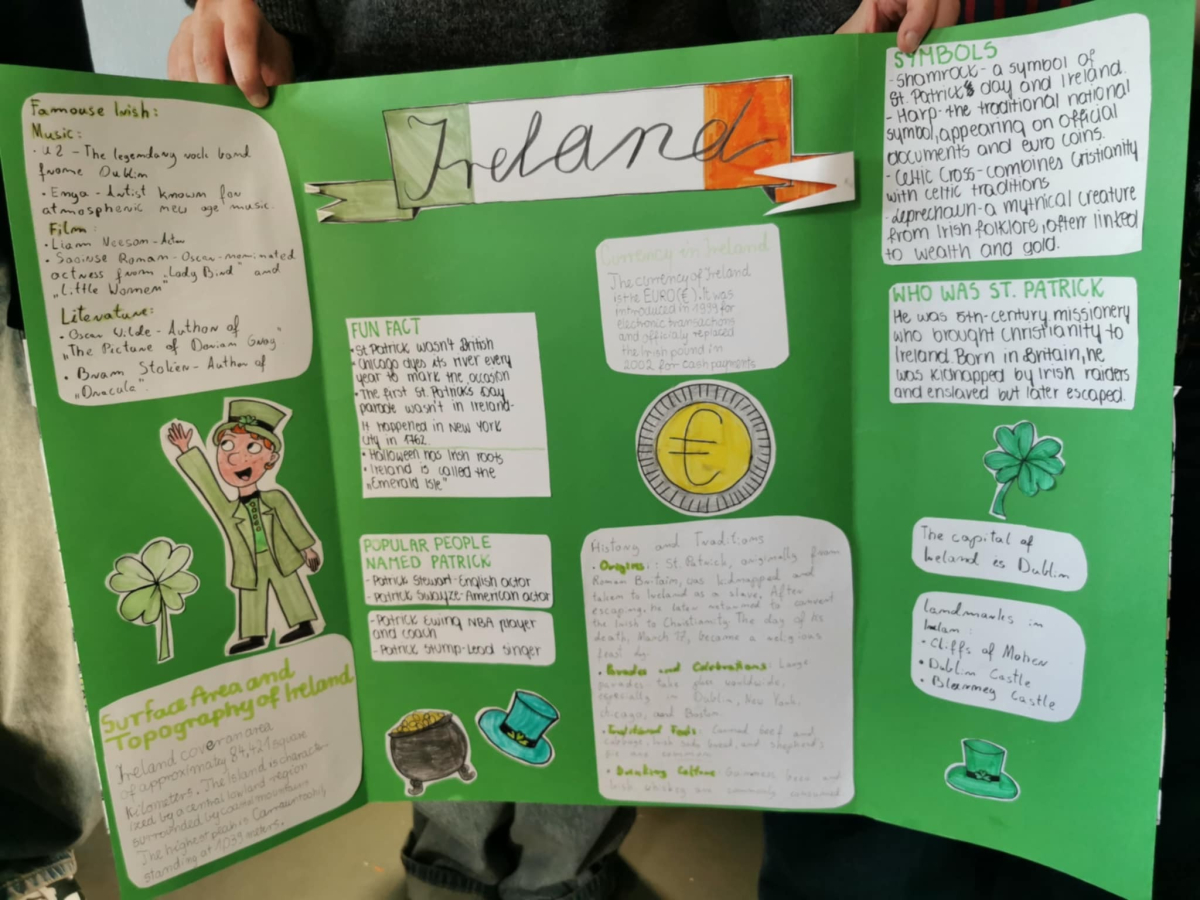 Famouse Irish:
Music:
· U2 - The legendary rock band
frome Dublin
· Enya - Artist known for
atmospheric new age music.
Film:
· Liam Neeson - Actor
· Saoirse Ronan - Oscar-nominated
actress from „Lady Bird" and
„Little Women"
Literature:
· Oscar Wilde - Author of
„The Picture of Dorian Gray"
· Bram Stoker - Author of
„Dracula".
Surface Area and
Topography of Ireland
Ireland covers an area
of approximately 84,421 square
kilometers. The island is characte-
rized by a central lowland region
surrounded by coastal mountains
The highest peak is Carrauntoohil,
standing at 1,039 meters.
Ireland
FUN FACT
· St Patrick wasn't British
· Chicago dyes its river every
year to mark the occasion
· The first St. Patricks Day
parade wasn't in Ireland-
it happened in New York
City in 1762.
· Halloween has Irish roots
· Ireland is called the
„Emerald Isle"
POPULAR PEOPLE
NAMED PATRICK
- Patrick Stewart - English actor
- Patrick Swayze - American actor
- Patrick Ewing NBA player
and coach
- Patrick Stump - Lead singer
Currency in Ireland
The currency of Ireland
is the EURO (€). It was
introduced in 1999 for
electronic transactions
and officialy replaced
the Irish pound in
2002 for cash payments
€
History and Traditions
· Origins: St. Patrick, originally from
Roman Britain, was kidnapped and
taken to Ireland as a slave. After
escaping, he later returned to convert
the Irish to Christianity. The day of his
death, March 17, became a religious
feast day.
· Parades and Celebrations: Large
parades take place worldwide,
especially in Dublin, New York,
Chicago, and Boston.
· Traditional Foods: Corned beef and
cabbage, Irish soda bread, and shepherd's
pie are common.
· Drinking Culture: Guinness beer and
Irish whiskey are commonly consumed
SYMBOLS
- Shamrock - a symbol of
St. Patrick's day and Ireland.
- Harp - the traditional national
symbol, appearing on official
documents and euro coins.
- Celtic Cross - combines Cristianity
with celtic traditions
- Leprechaun - a mythical creature
from Irish folklore, often linked
to wealth and gold.
WHO WAS ST. PATRICK
He was 5th-century missionery
who brought christianity to
Ireland. Born in Britain, he
was kidnapped by Irish raiders
and enslaved but later escaped.
The capital of
Ireland is Dublin
Landmarks in
Irelan:
· Cliffs of Moher
· Dublin Castle
· Blarney Castle